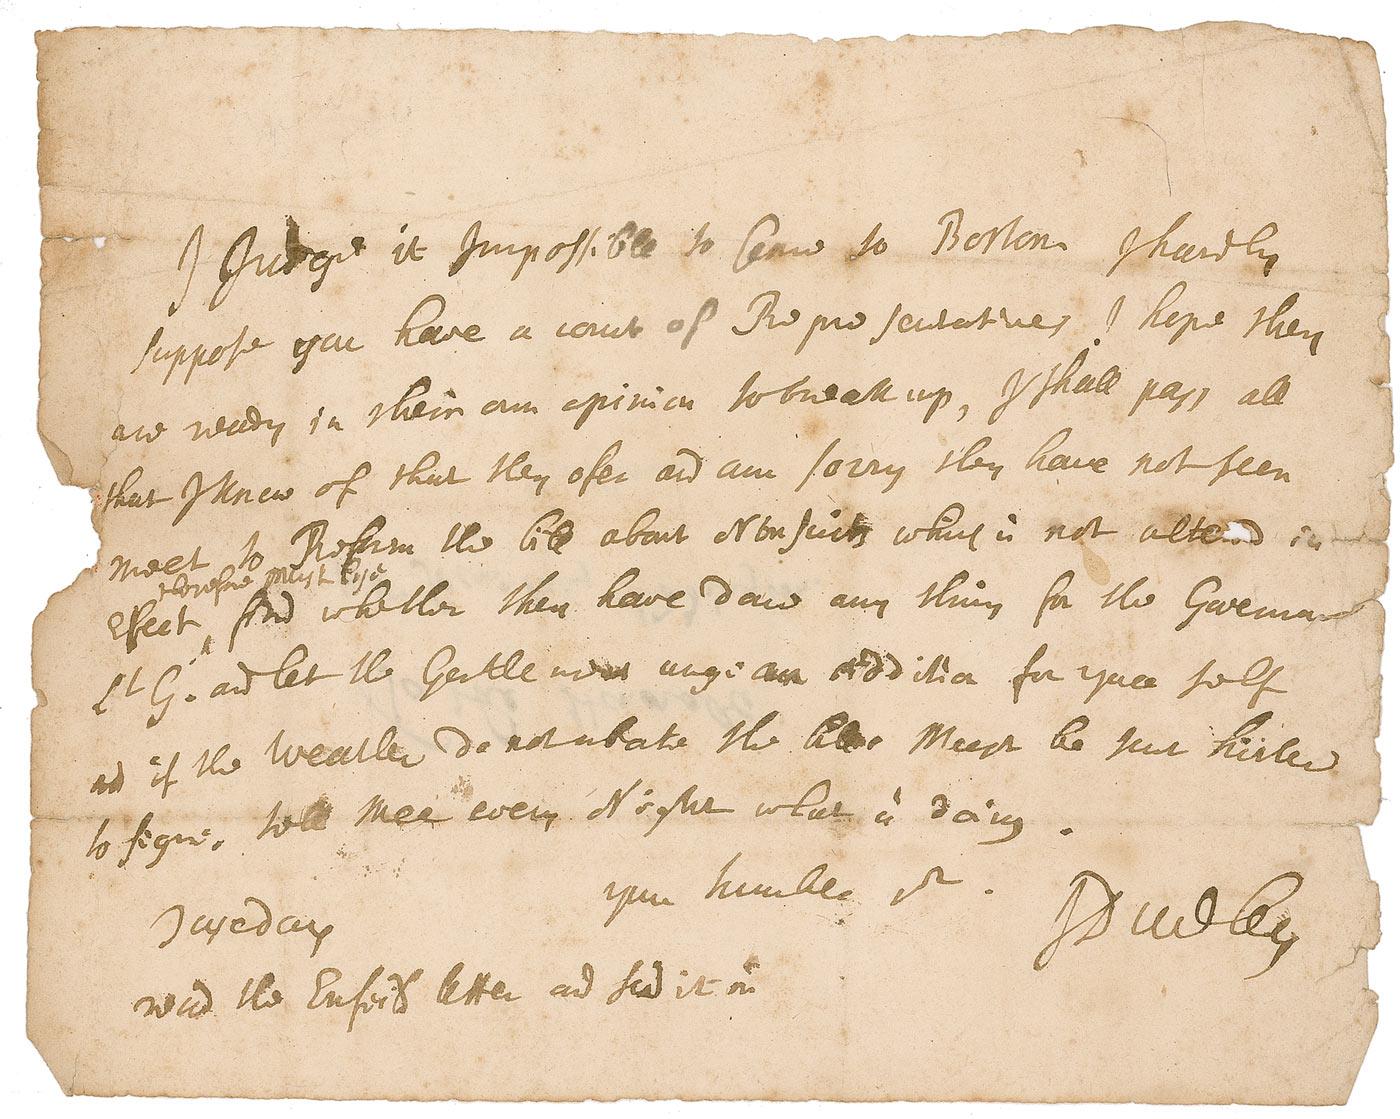 I Judge it Impossible to Come to Boston I hardly
suppose you have a court of Representatives I hope they
are ready in their own opinion to break up, I shall pass all
that I know of that they ofer and am sorry they have not seen
meet to Reform the bill about which is not altered in
therefore must lye
Efect, find whether they have done any thing for the Governour
Lt G. and let the Gentlemen urge an Addition for your self
and if the Weather do not abate the bills Must be sent hither
to signe. tell Mee every Night what is doing.
your humble sr.
JDudley
Tuseday
read the letter and send it in